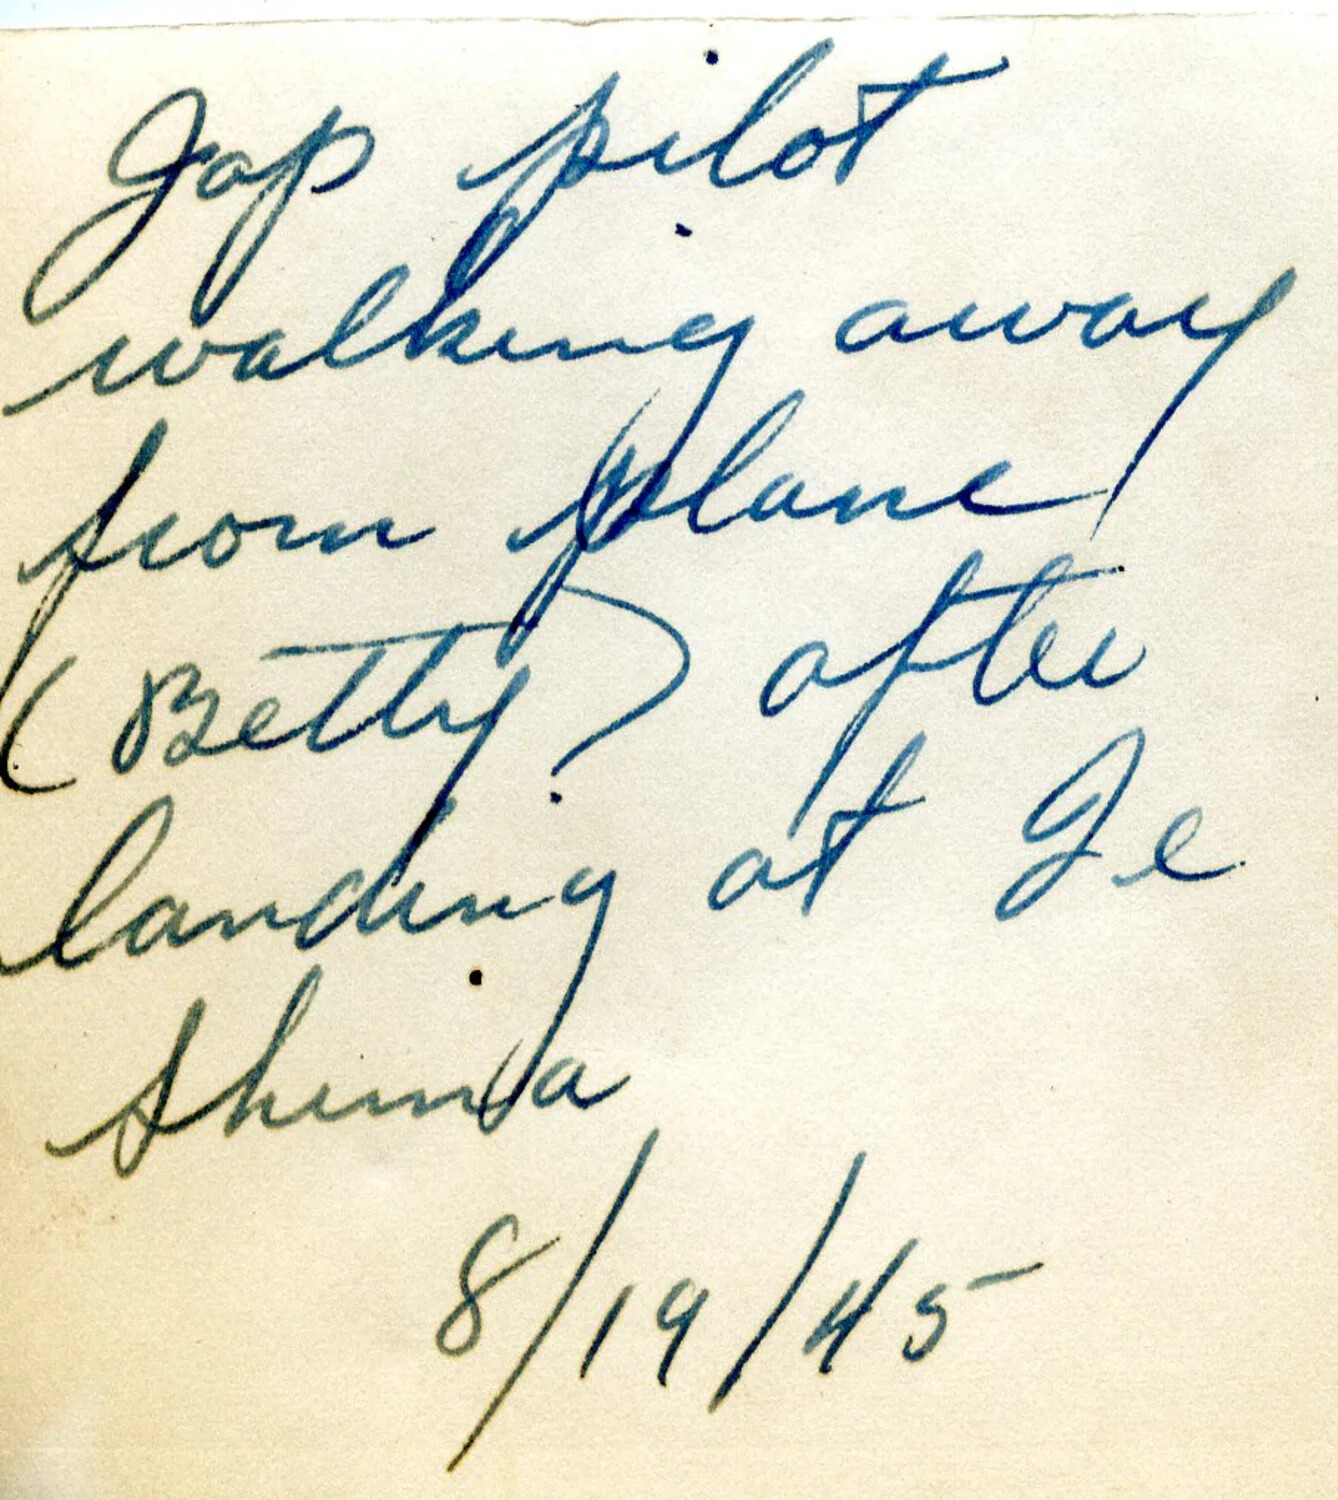 Jap pilot
walking away
from plane
(Betty) after
landing at Ie
Shima
8/19/45